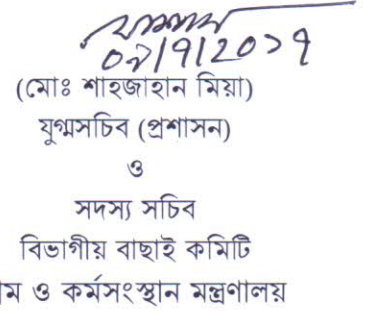 (মোঃ শাহজাহান মিয়া)
যুগ্মসচিব (প্রশাসন)
ও
সদস্য সচিব
বিভাগীয় বাছাই কমিটি
ম ও কর্মসংস্থান মন্ত্রণালয়